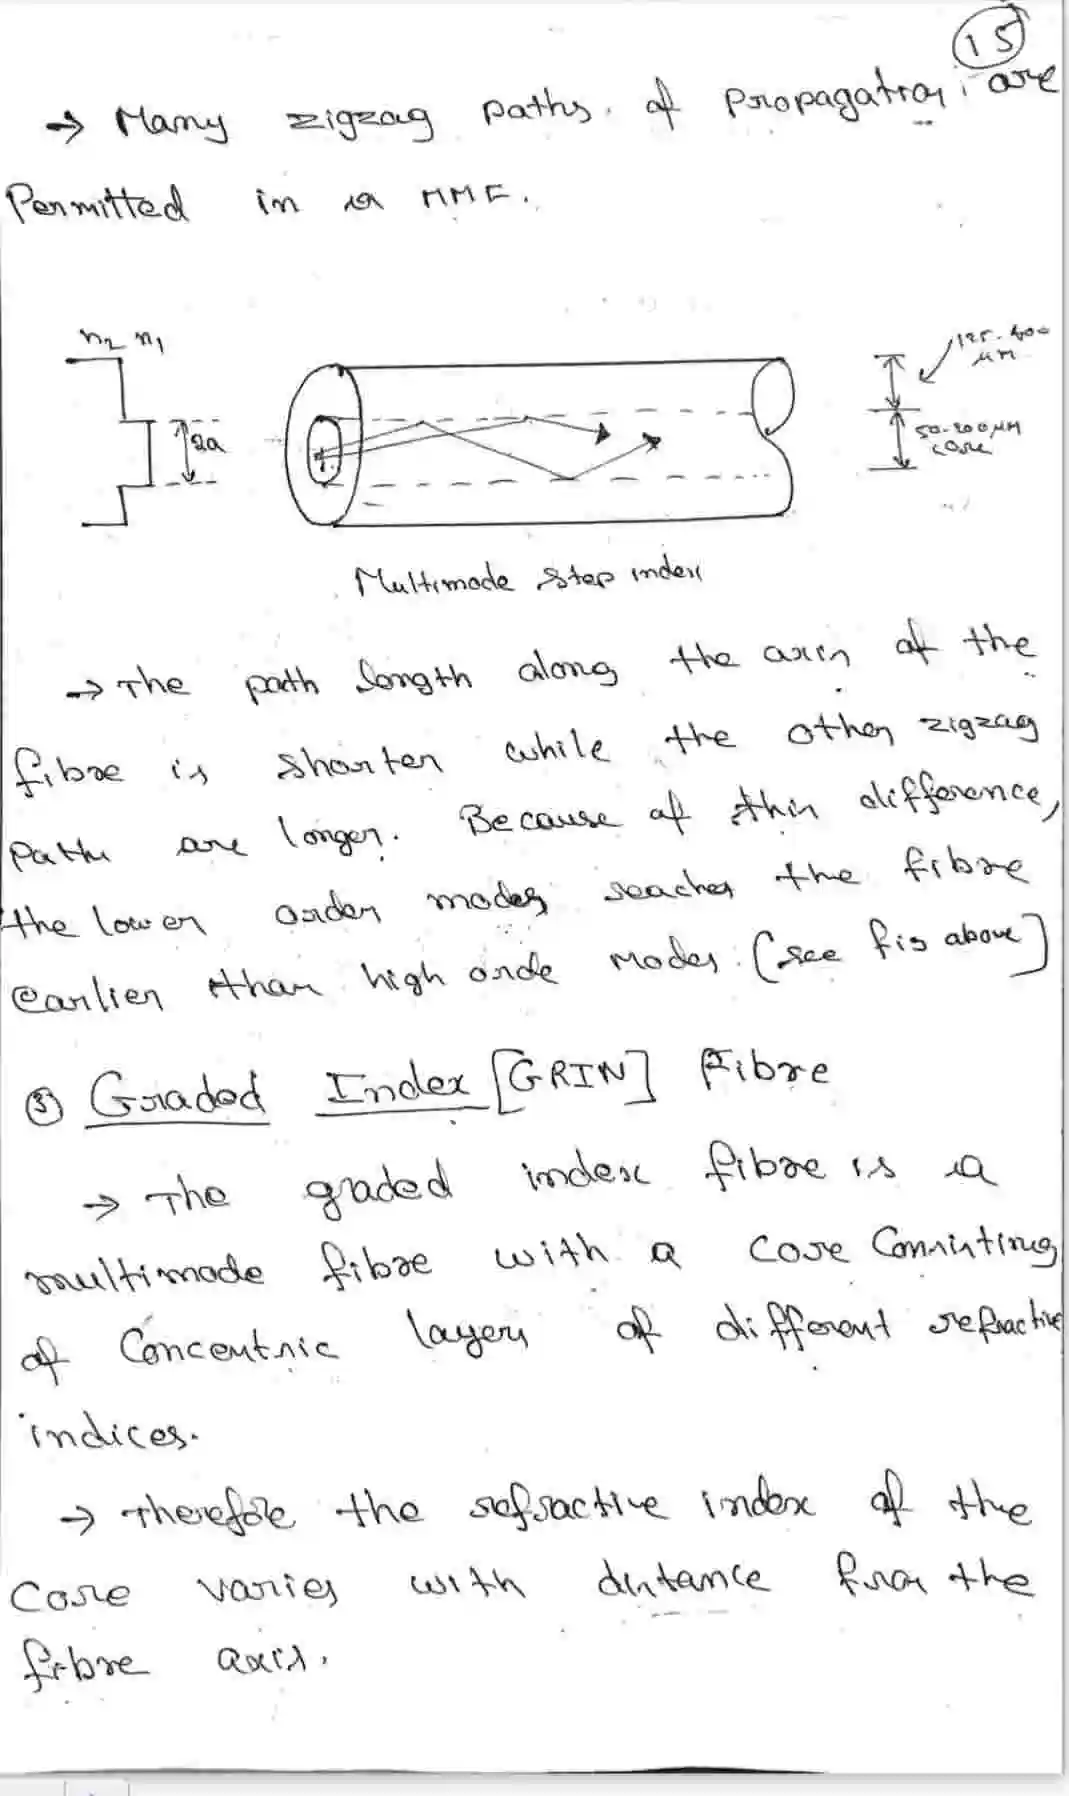 15
→ Many zigzag paths of propagation are
Permitted in a MMF.
n2 n1
2a
125-400
μm
50-200μM
core
Multimode step index
→ The path length along the axis of the
fibre is shorter while the other zigzag
paths are longer. Because of this difference,
the lower order modes reaches the fibre
earlier than high orde modes (see fig above]
③ Graded Index [GRIN] Fibre
→ The graded index fibre is a
multimode fibre with a core Consisting
of Concentric layers of different refractive
indices.
→ Therefore the refractive index of the
Core varies with distance from the
fibre axis.